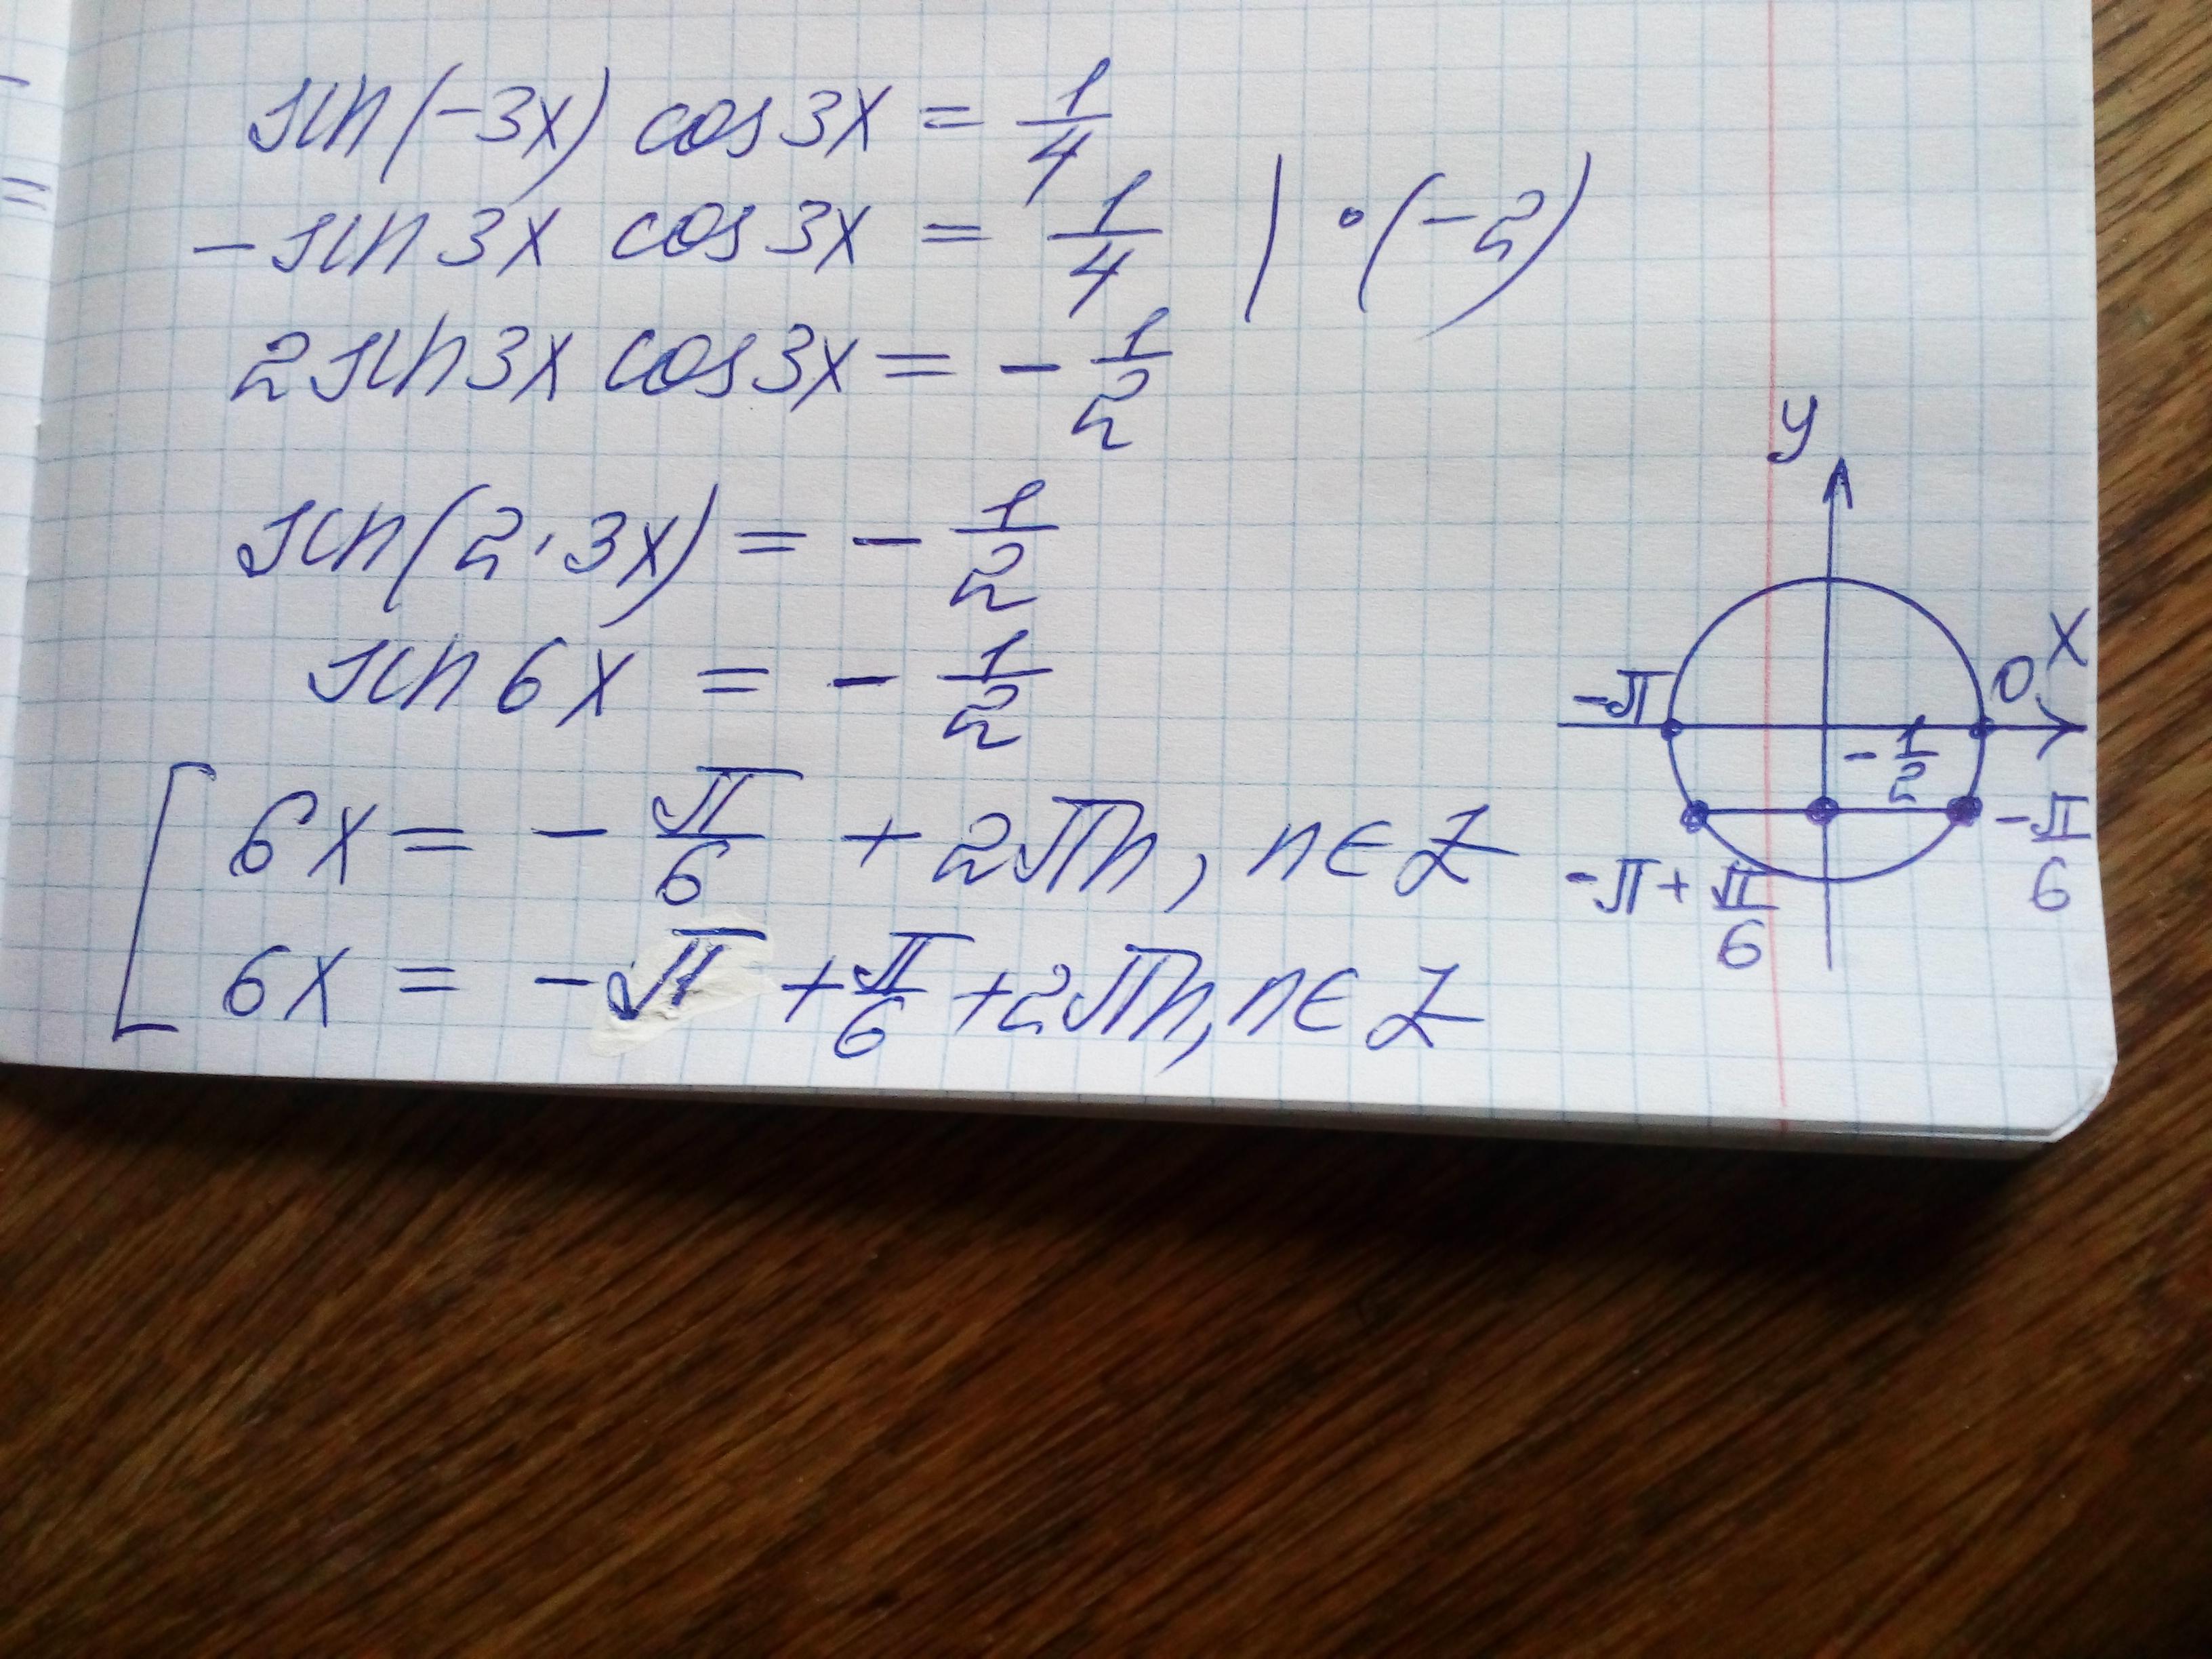 sin(-3x) cos3x = 1/4
-sin3x cos3x = 1/4 | ∘(-2)
2sin3x cos3x = -1/2
sin(2·3x) = -1/2
sin6x = -1/2
[ 6x = -π/6 + 2πn, n∈Z
6x = -π + π/6 + 2πn, n∈Z
y
x
-π
0
-1/2
-π/6
-π+π/6
=